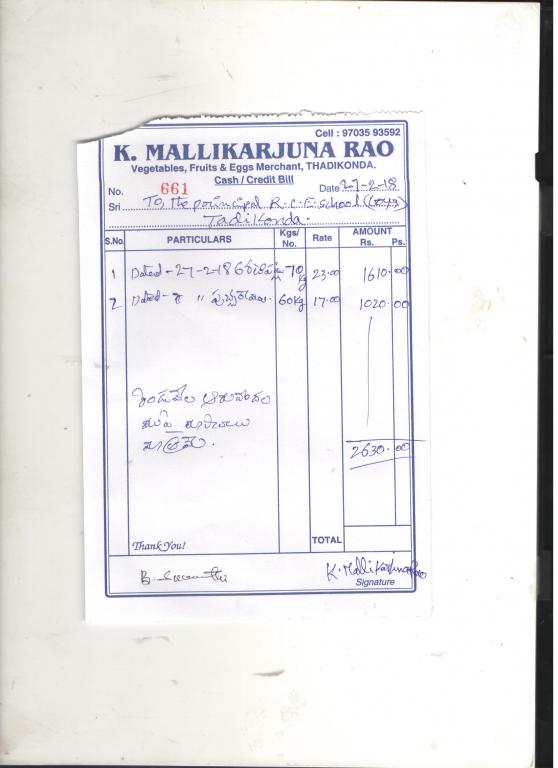 Cell : 97035 93592
K. MALLIKARJUNA RAO
Vegetables, Fruits & Eggs Merchant, THADIKONDA.
Cash / Credit Bill
No. 661 Date 27-2-18
Sri To, the principal R.C.E. school (Boys)
Tadikonda.
S.No. PARTICULARS Kgs/ No. Rate AMOUNT Rs. Ps.
1 Dated - 27-2-18 70 kg 23.00 1610.00
2 Dated - " " 60kg 17.00 1020.00
రెండువేల ఆరువందల
ముప్పై రూపాయలు
మాత్రమే.
2630.00
Thank You! TOTAL
K. Mallikarjuna Rao
Signature